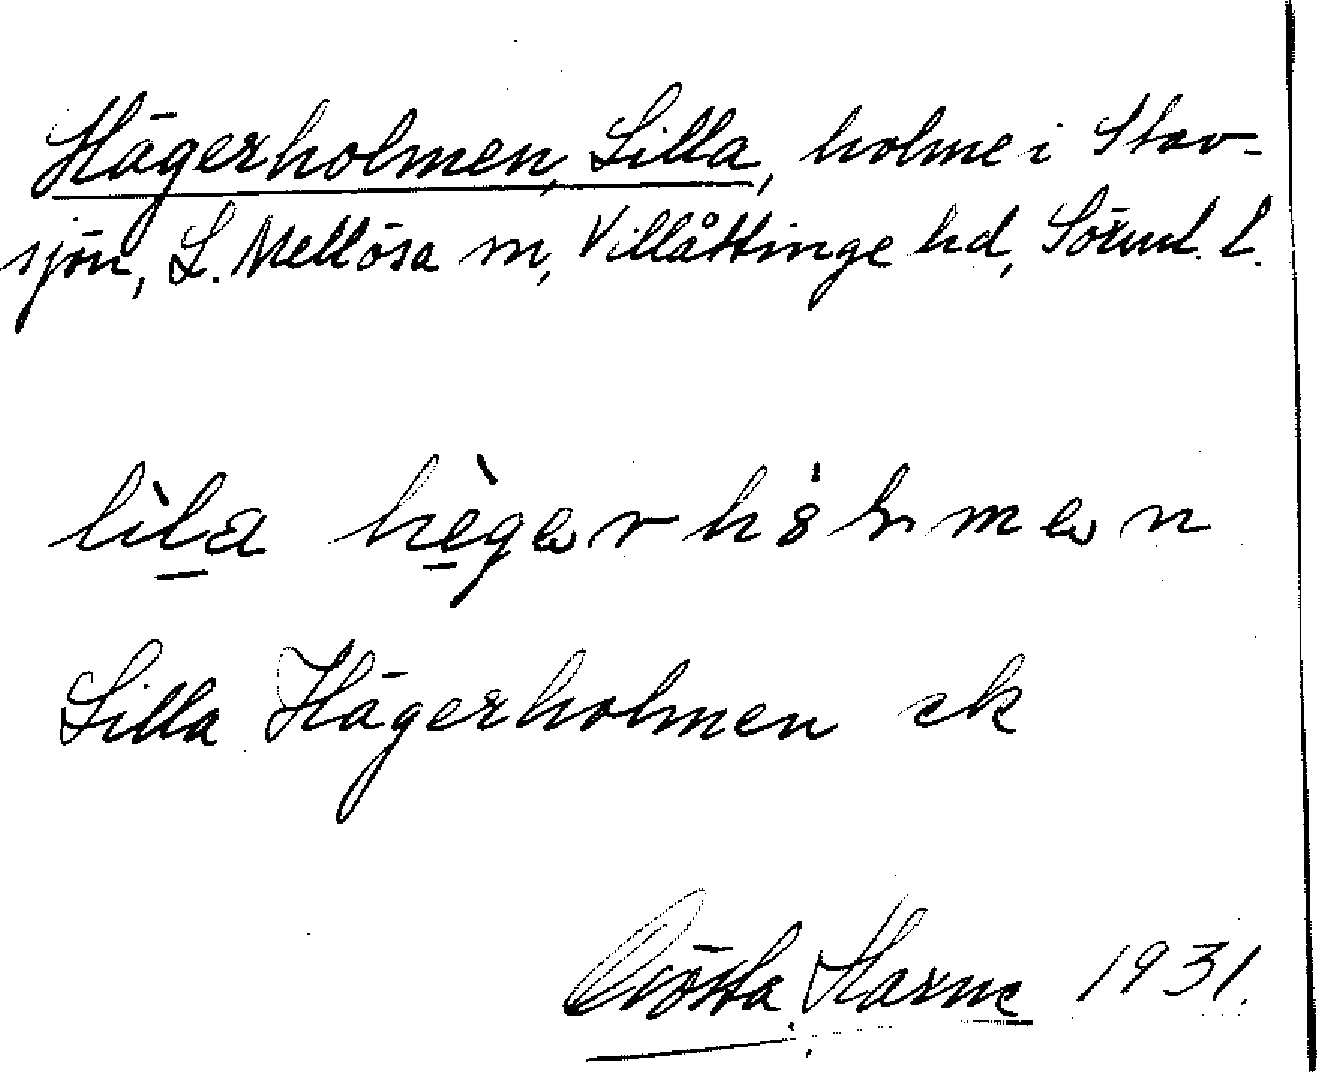 Hägerholmen, Lilla, holme i Stav-
sjön, L. Mellösa sn, Villåttinge hd, Sörml. l.
lìla hègerhòlmen
Lilla Hägerholmen ek
Gösta Harne 1931.